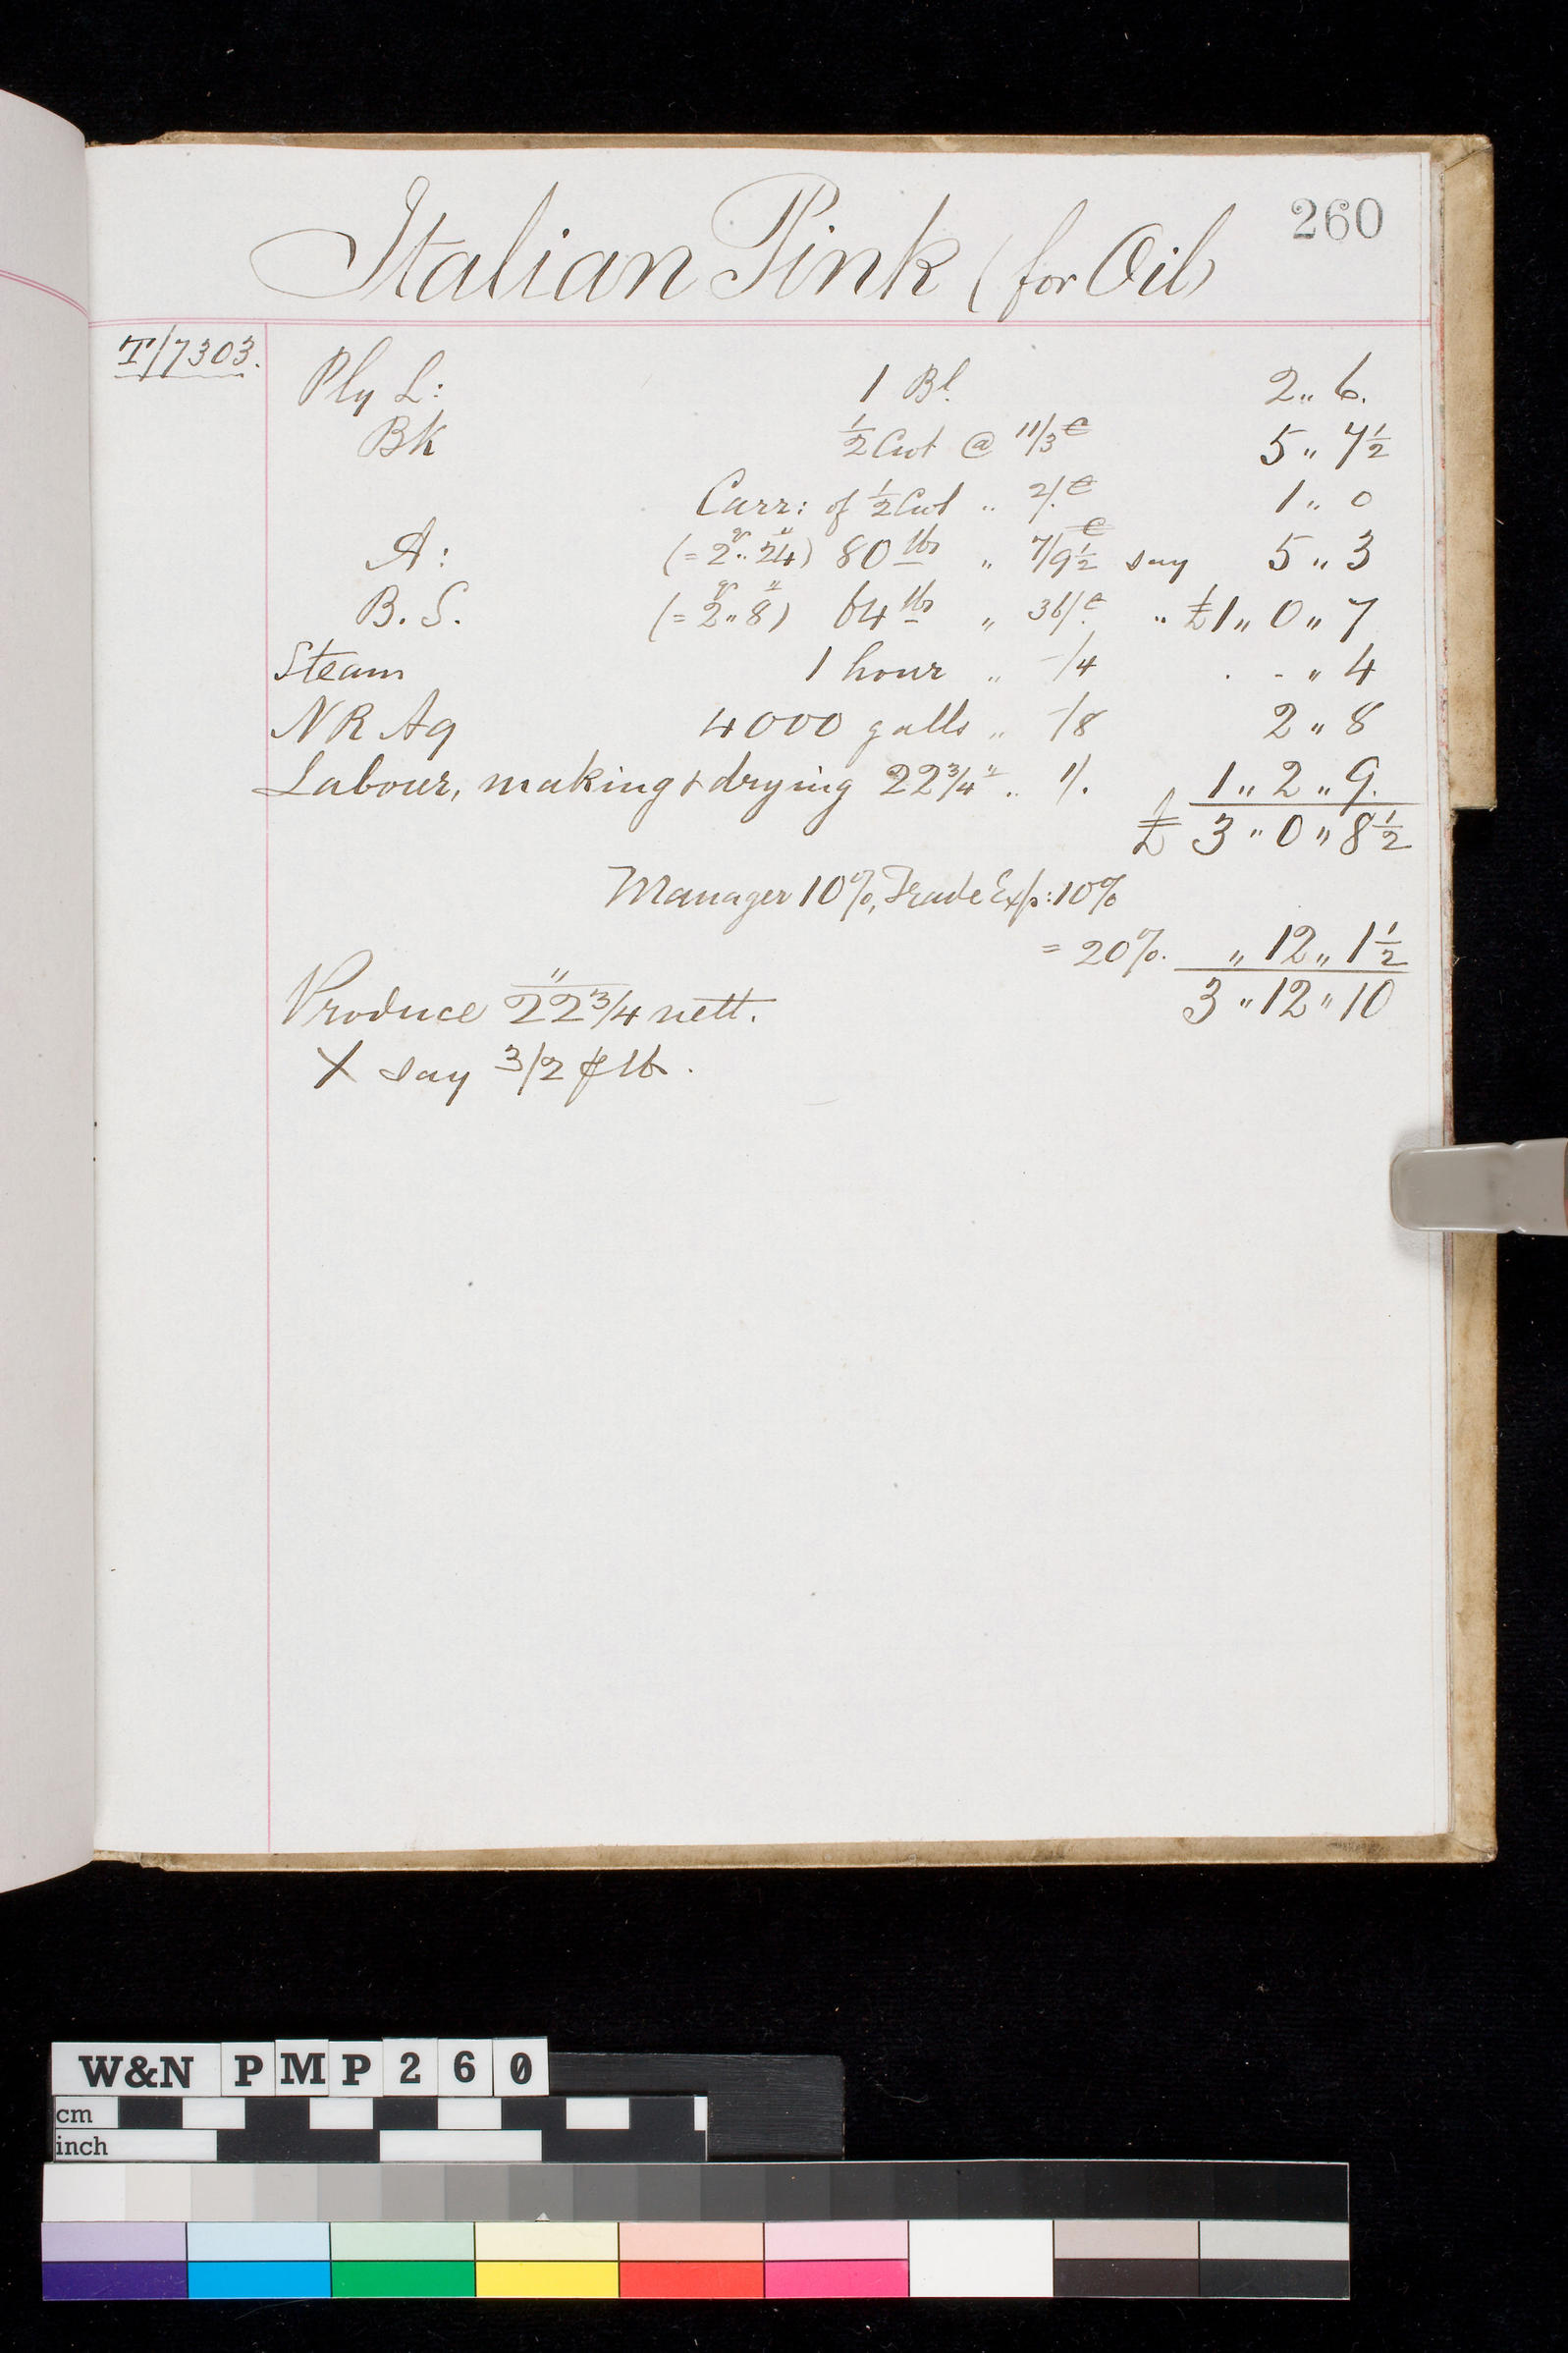 260
Italian Pink (for Oil)
T/7303.
Ply L: 1 Bl. 2 " 6.
Bk ½ Cwt @ 11/3 ₠ 5 " 7½
Carr: of ½ Cwt " 2/. ₠ 1 " 0
A: (= 2 qr " 24 ") 80 lbs " 7/9½ ₠ say 5 " 3
B. S. (= 2 qr " 8 ") 64 lbs " 36/. ₠ " £1 " 0 " 7
Steam 1 hour " -/4 . - " 4
NR Aq 4000 galls " -/8 2 " 8
Labour, making & drying 22¾ " " 1/. 1 " 2 " 9.
£ 3 " 0 " 8½
Manager 10%, Trade Exp: 10%
= 20%. " 12 " 1½
3 " 12 " 10
Produce 22¾ " nett.
X say 3/2 ⅌ lb.
W&N PMP260
cm
inch